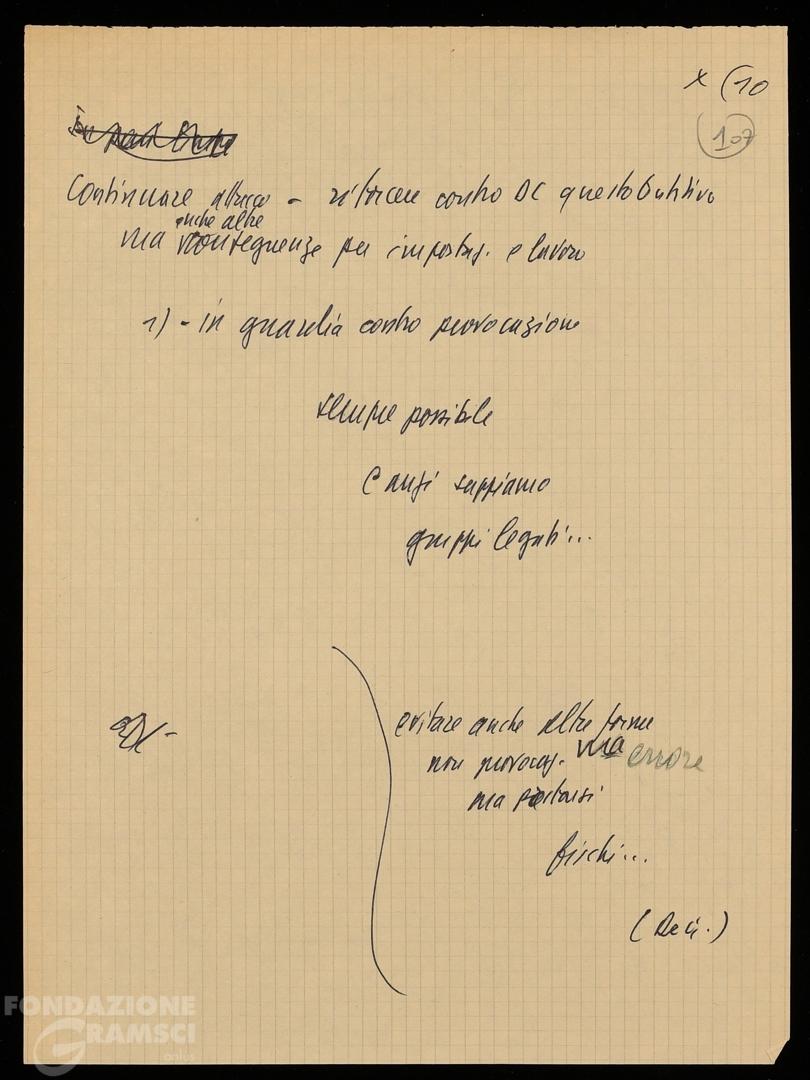 x (10
107
Continuare attacco - ritorcere contro DC questo
anche altre
ma conseguenze per impostaz. e lavoro
1) - in guardia contro provocazione
sempre possibile
e anzi sappiamo
gruppi legati...
evitare anche altre forme
non provocaz. ma errore
ma
fischi...
FONDAZIONE
GRAMSCI
onlus